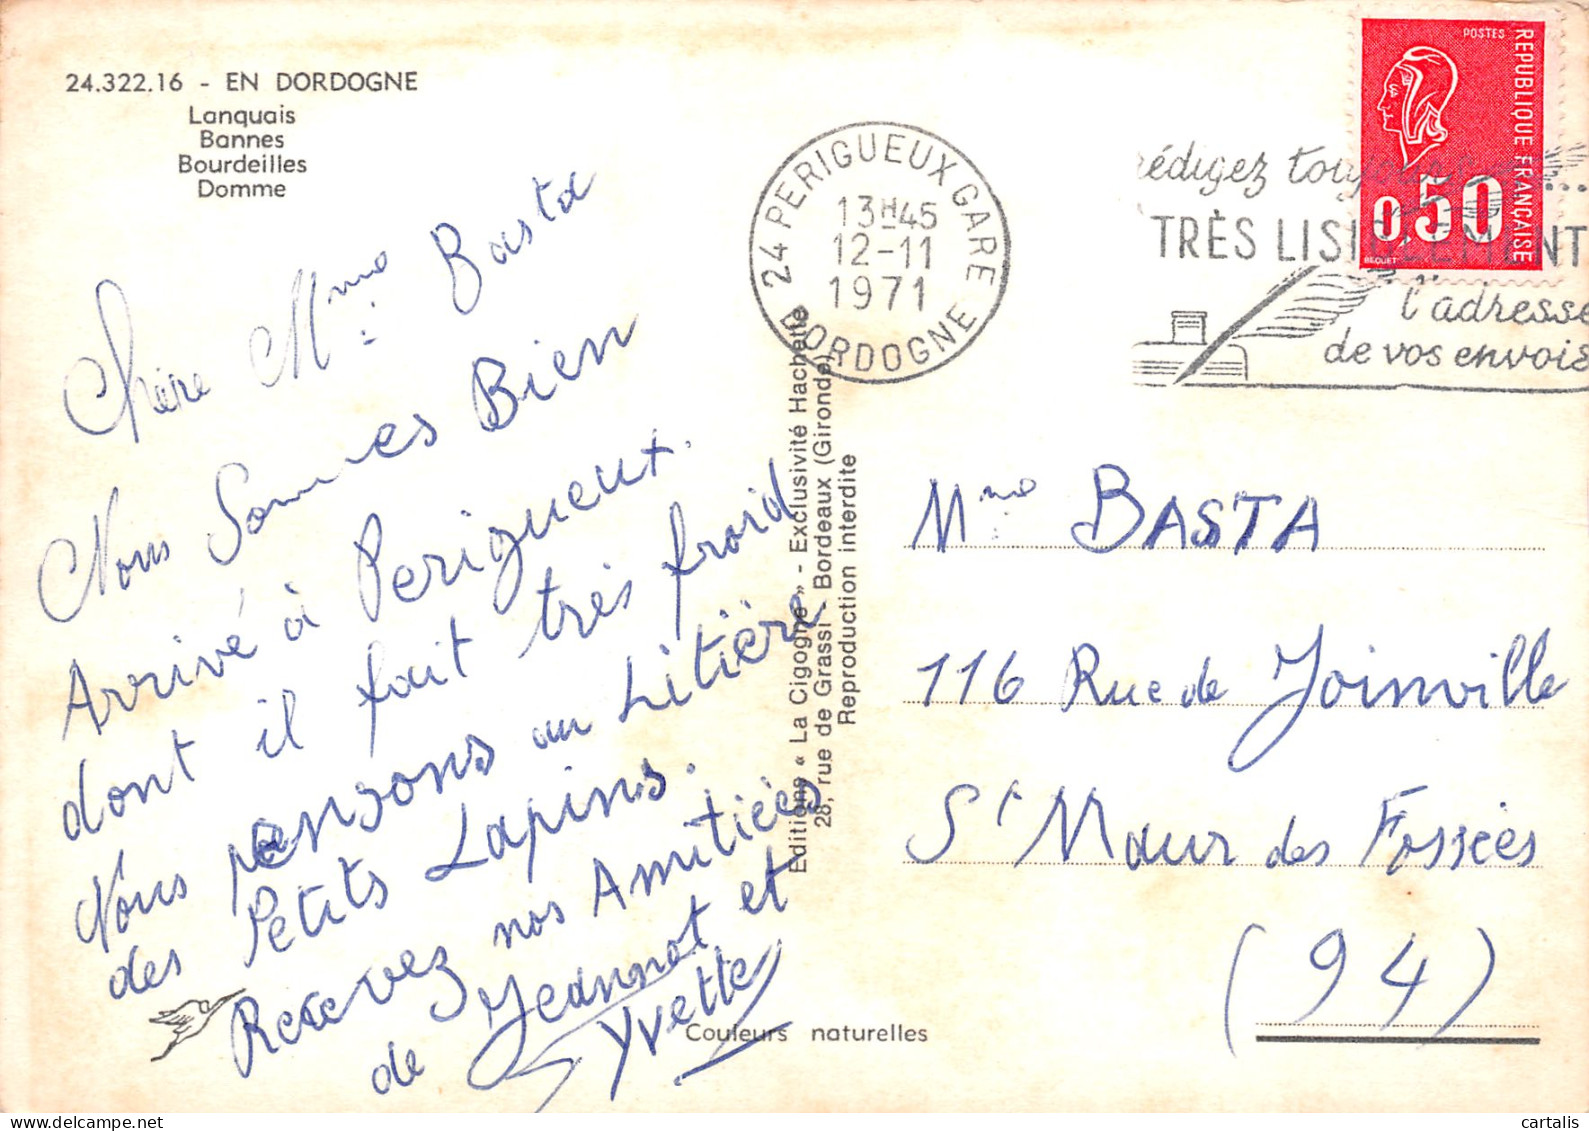 24.322.16 - EN DORDOGNE
Lanquais
Bannes
Bourdeilles
Domme
Chère Mme Basta
Nous Sommes Bien
Arrivé à Perigueux.
dont il fait très froid
Nous pensons au Litière
des Petits Lapins.
Recevez nos Amitiées
de Jeannot et
Yvette
Couleurs naturelles
Editions « La Cigogne » - Exclusivité Hachette
28, rue de Grassi - Bordeaux (Gironde)
Reproduction interdite
24 PERIGUEUX GARE
13H45
12-11
1971
DORDOGNE
rédigez toujours
TRÈS LISIBLEMENT
l'adresse
de vos envois
POSTES
REPUBLIQUE FRANÇAISE
0,50
BEQUET
Mme BASTA
116 Rue de Joinville
St Maur des Fossées
(94)
cartalis